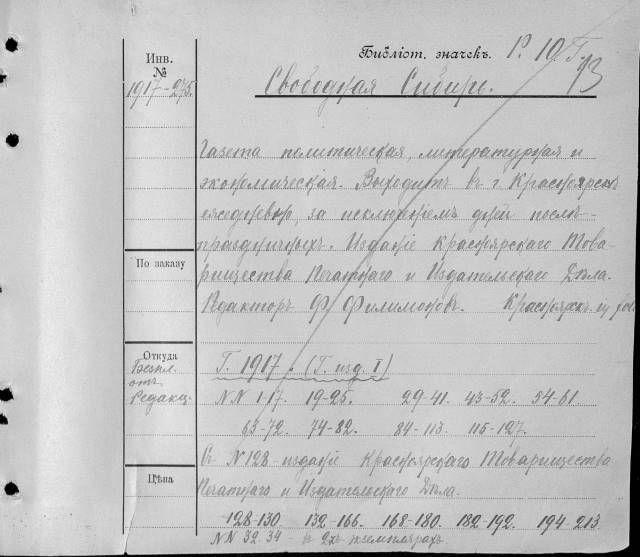 Инв.
№
1917-275.
Библіот. значекъ. Р. 10/Г.
93
Свободная Сибирь.
Газета политическая, литературная и
экономическая. Выходитъ въ г. Красноярскѣ
ежедневно, за исключеніемъ дней послѣ-
праздничныхъ. Изданіе Красноярскаго Това-
рищества Печатнаго и Издательскаго Дѣла.
Редакторъ Ф. Филимоновъ. Красноярскъ. in fol.
По заказу
Откуда
Безпл.
отъ
Редакц.
Г. 1917. (Г. изд. I)
NN 1-17. 19-25. 29-41. 43-52. 54-61.
63-72. 74-82. 84-113. 115-127.
Съ N 128 изданіе Красноярскаго Товарищества
Печатнаго и Издательскаго Дѣла.
Цѣна
128-130. 132-166. 168-180. 182-192. 194-213
NN 32 34 въ 2хъ экземплярахъ